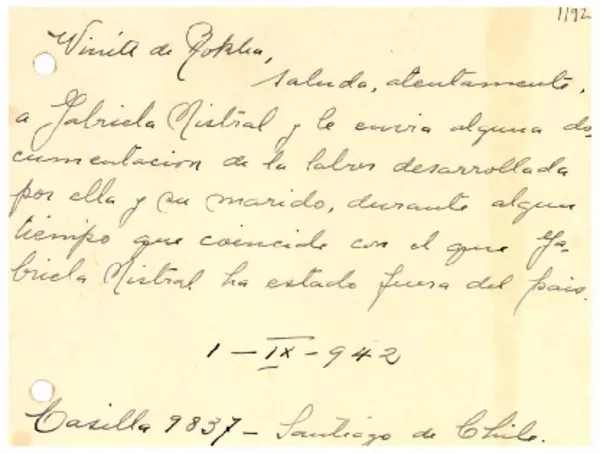 1192
Winétt de Rokha,
saluda, atentamente,
a Gabriela Mistral y le envia alguna do-
cumentacion de la labor desarrollada
por ella y su marido, durante algun
tiempo que coincide con el que Ga-
briela Mistral ha estado fuera del pais.
1 - IX - 942
Casilla 9837 - Santiago de Chile.